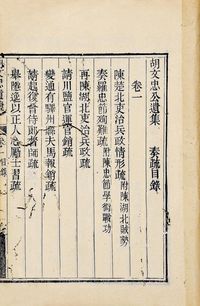 胡文忠公遺集 奏疏目錄
卷一
陳楚北吏治兵政情形疏附陳湖北賊勢
奏羅忠節殉難疏附陳忠節學術戰功
再陳湖北吏治兵政疏
請川鹽官運官銷疏
變通有驛州縣夫馬報銷疏
請起復曾侍郎督師疏
舉陸遜以正人心厲士習疏